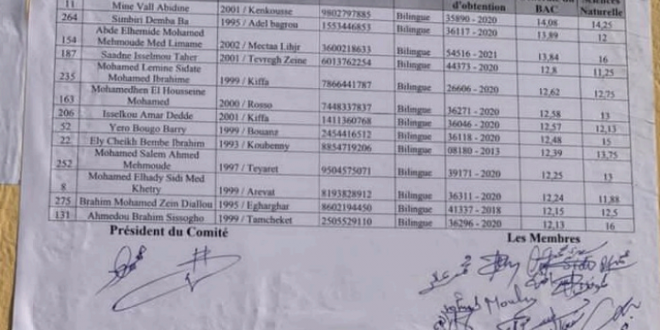 d'obtention BAC Naturelle
11 Mine Vall Abidine 2001 / Kenkousse 9802797885 Bilingue 35890 - 2020 14,08 14,25
264 Simbiri Demba Ba 1995 / Adel bagrou 1553446853 Bilingue 36117 - 2020 13,89 12
Abde Elhemide Mohamed
Mahmoude Med Limame 2002 / Mectaa Lihjr 3600218633 Bilingue 54516 - 2021 13,84 16
187 Saadne Isselmou Taher 2001 / Tevregh Zeine 6013762254 Bilingue 44373 - 2020 12,8 11,25
235 Mohamed Lemine Sidate
Mohamed Ibrahime 1999 / Kiffa 7866441787 Bilingue 26606 - 2020 12,62 12,75
163 Mohamedhen El Housseine
Mohamed 2000 / Rosso 7448337837 Bilingue 36271 - 2020 12,58 13
206 Isselkou Amar Dedde 2001 / Kiffa 1411360768 Bilingue 36046 - 2020 12,57 12,13
52 Yero Bougo Barry 1999 / Bouanz 2454416512 Bilingue 36118 - 2020 12,48 15
22 Ely Cheikh Bembe Ibrahim 1993 / Koubenny 8854719206 Bilingue 08180 - 2013 12,39 13,75
252 Mohamed Salem Ahmed
Mehmoude 1997 / Teyaret 9504575071 Bilingue 39171 - 2020 12,25 13
8 Mohamed Elhady Sidi Med
Khetry 1999 / Arevat 8193828912 Bilingue 36311 - 2020 12,24 11,88
275 Brahim Mohamed Zein Diallou 1995 / Egharghar 8602194450 Bilingue 41337 - 2018 12,15 12,5
131 Ahmedou Brahim Sissogho 1999 / Tamcheket 2505529110 Bilingue 36296 - 2020 12,13 16
Président du Comité Les Membres